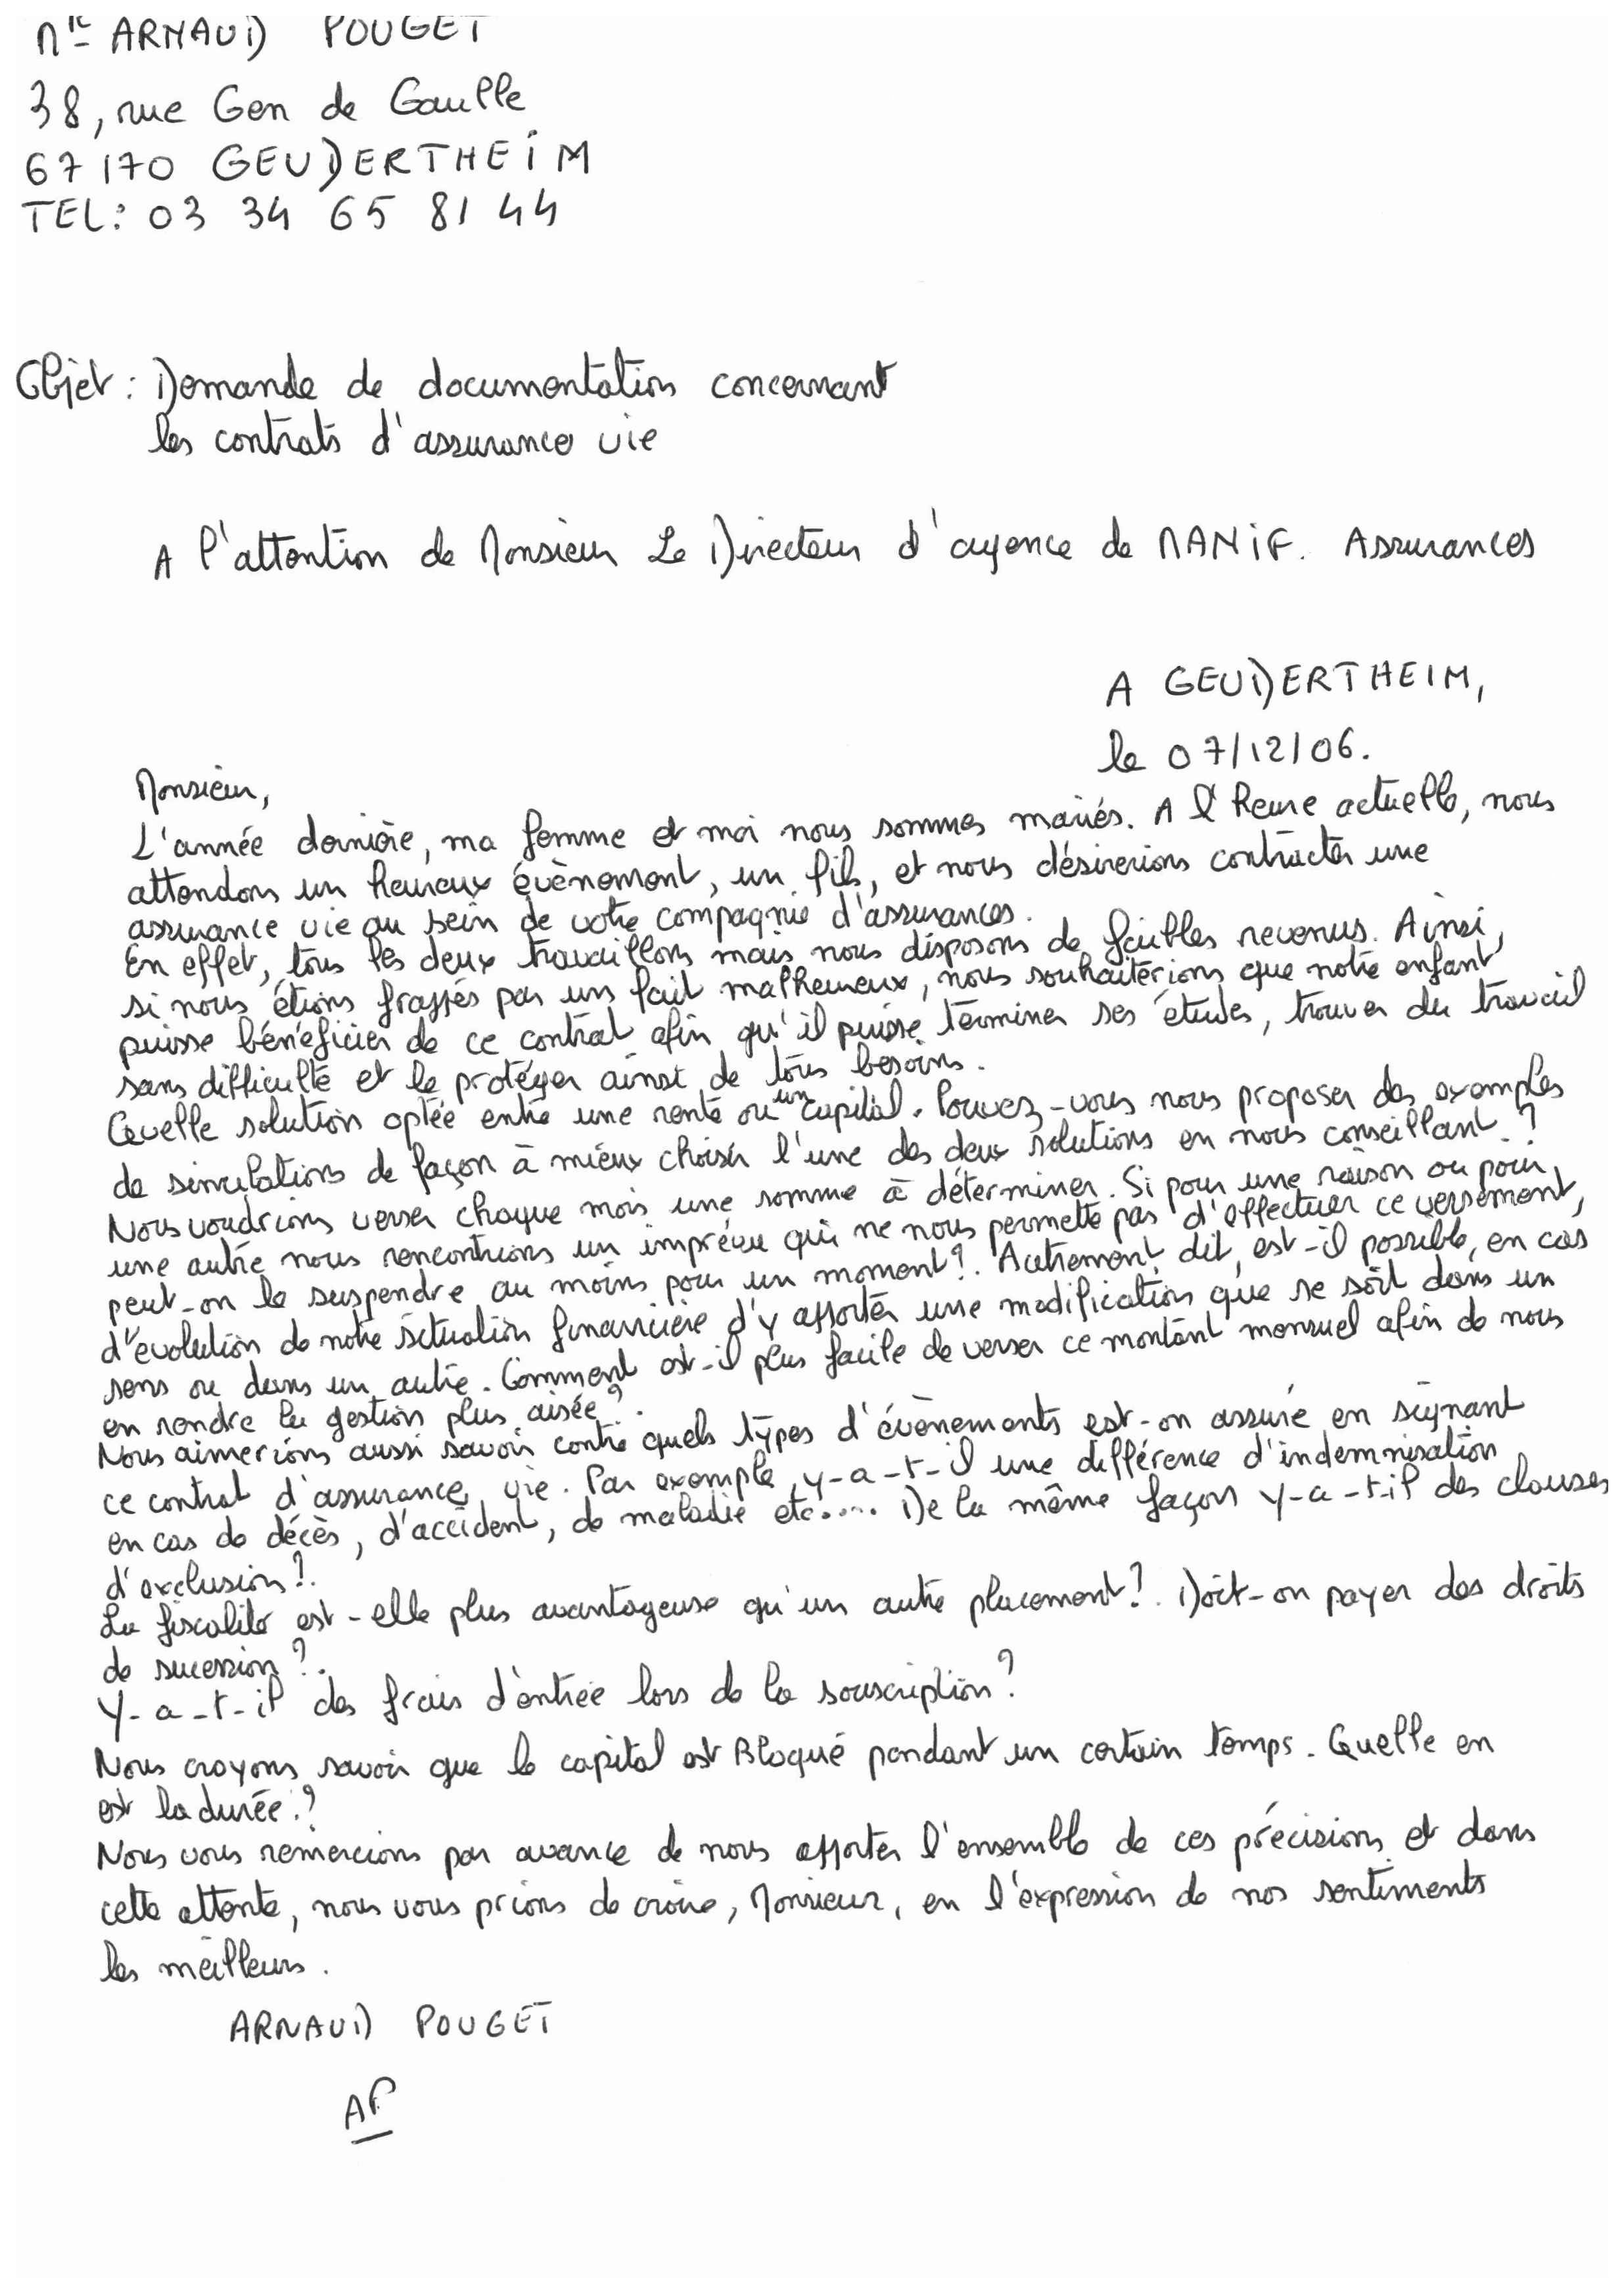 Mr ARNAUD POUGET
38, rue Gen de Gaulle
67170 GEUDERTHEIM
TEL: 03 34 65 81 44
Objet : Demande de documentation concernant
les contrats d'assurance vie
A l'attention de Monsieur Le Directeur d'agence de MANIF. Assurances
A GEUDERTHEIM,
le 07/12/06.
Monsieur,
L'année dernière, ma femme et moi nous sommes mariés. A l'heure actuelle, nous
attendons un heureux évènement, un fils, et nous désirerions contracter une
assurance vie au sein de votre compagnie d'assurances.
En effet, tous les deux travaillons mais nous disposons de faibles revenus. Ainsi,
si nous étions frappés par un fait malheureux, nous souhaiterions que notre enfant
puisse bénéficier de ce contrat afin qu'il puisse terminer ses études, trouver du travail
sans difficulté et le protéger ainsi de tous besoins.
Quelle solution optée entre une rente ou un capital. Pouvez-vous nous proposer des exemples
de simulations de façon à mieux choisir l'une des deux solutions en nous conseillant ?
Nous voudrions verser chaque mois une somme à déterminer. Si pour une raison ou pour
une autre nous rencontrions un imprévu qui ne nous permette pas d'effectuer ce versement,
peut-on le suspendre au moins pour un moment ?. Autrement dit, est-il possible, en cas
d'évolution de notre situation financière d'y apporter une modification que se soit dans un
sens ou dans un autre. Comment est-il plus facile de verser ce montant mensuel afin de nous
en rendre la gestion plus aisée ?.
Nous aimerions aussi savoir contre quels types d'évènements est-on assuré en signant
ce contrat d'assurance vie. Par exemple, y-a-t-il une différence d'indemnisation
en cas de décès, d'accident, de maladie etc.... De la même façon y-a-t-il des clauses
d'exclusion ?.
La fiscalité est-elle plus avantageuse qu'un autre placement ?. Doit-on payer des droits
de sucession ?.
Y-a-t-il des frais d'entrée lors de la souscription ?
Nous croyons savoir que le capital est Bloqué pendant un certain temps. Quelle en
est la durée.?
Nous vous remercions par avance de nous apporter l'ensemble de ces précisions et dans
cette attente, nous vous prions de croire, Monsieur, en l'expression de nos sentiments
les meilleurs.
ARNAUD POUGET
AP